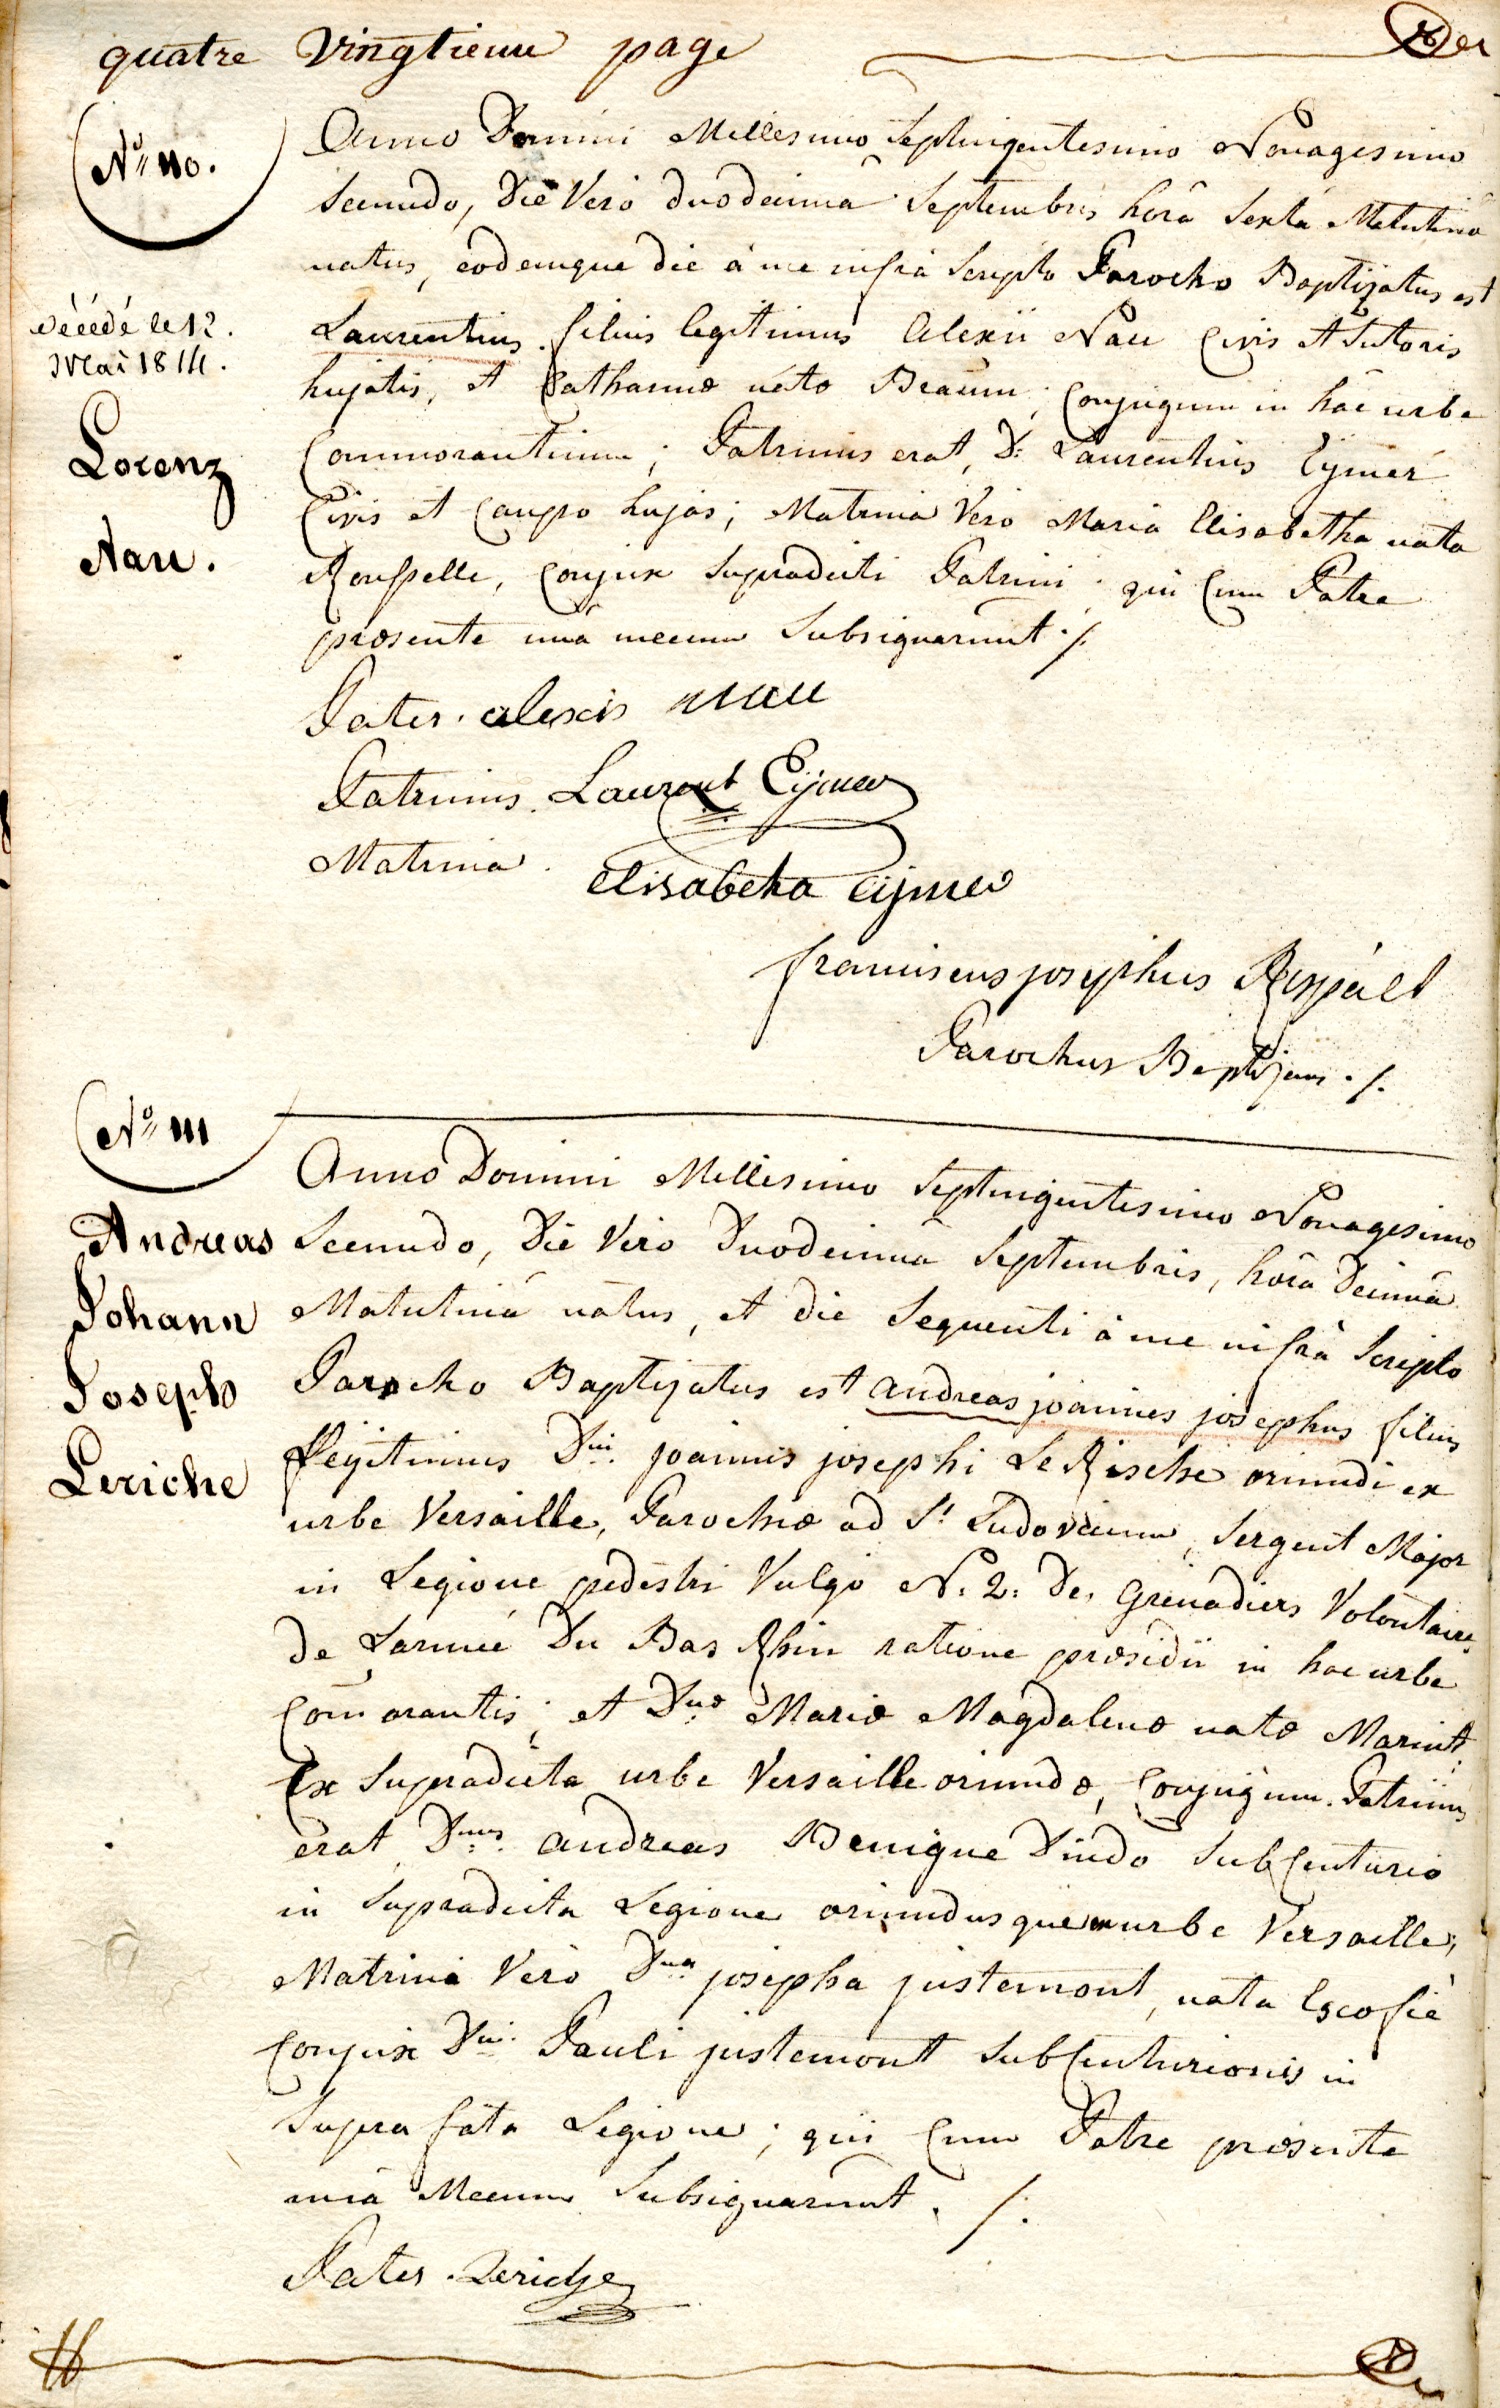 quatre Vingtieme page
N° 110.
Anno Domini Millesimo Septingentesimo Nonagesimo
Secundo, Die Vero duodecima Septembris hora Sexta Matutina
natus, eodemque die à me infrà Scripto Parocho Baptizatus est
décédé le 12.
Mai 1814.
Laurentius filius legitimus Alexii Nau Civis et Sutoris
hujatis, et Catharinæ natæ Braun, Conjugum in hac urbe
Lorenz
Nau.
Commorantium; Patrinus erat, D: Laurentius Eymer
Civis et Caupo hujas; Matrina Vero Maria Elisabetha nata
Rousselle, Conjux Supradicti Patrini; qui Cum Patre
præsente unà mecum Subsignarunt ./.
Pater. alexis nau
Patrinus. Laurent Eijmer
Matrina. Elisabeha Eijmer
franciscus josephus Rospàtt
Parochus Baptizans ./.
N° 111
Andreas
Johann
Joseph
Leriche
Anno Domini Millesimo Septingentesimo Nonagesimo
Secundo, Die Vero Duodecima Septembris, hora Decima
Matutina natus, et die Sequenti à me infrà Scripto
Parocho Baptizatus est andreas joannes josephus filius
legitimus Dni. joannis josephi Le Rische oriundi ex
urbe Versaille, Parochiæ ad St Ludovicum, Sergent Major
in Legione pedestri Vulgo N. 2. De, Grenadiers Volontaires
de Larmeé Du Bas Rhin ratione præsidii in hac urbe
Com̄orantis; et Dnæ Mariæ Magdalenæ natæ Marint
Ex Supradicta urbe Versaille oriundæ, Conjugum. Patrinus
erat Dnus. andreas Benigne Dindo SubCenturio
in Supradicta Legione oriundusque urbe Versaille;
Matrina Vero Dna josepha justemont, nata Escofiè
Conjux Dni. Pauli justemont SubCenturionis in
Supra fata Legione; qui Cum Patre præsente
unà Mecum Subsignarunt ./.
Pater. Leriche